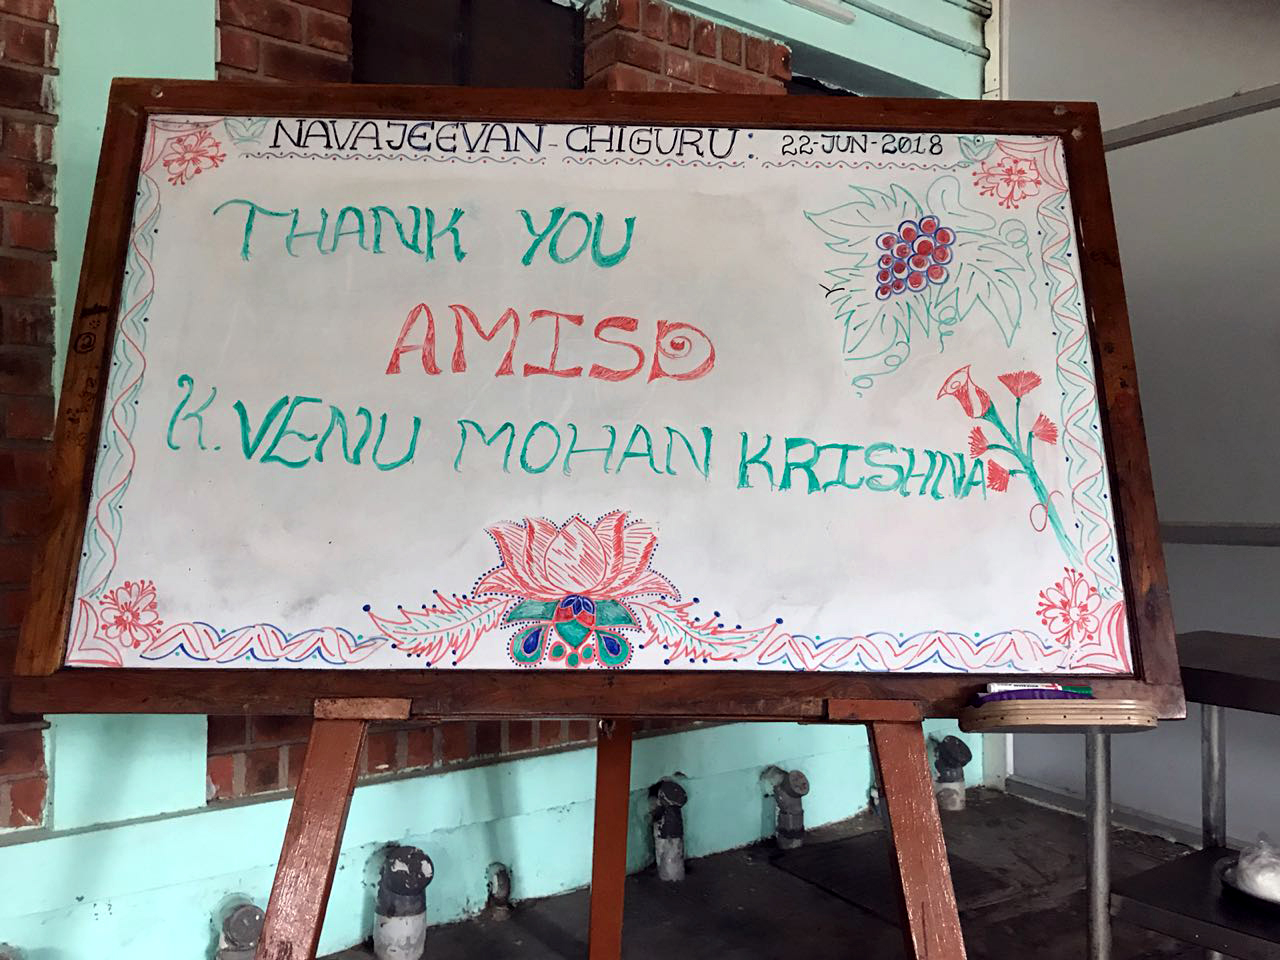 NAVAJEEVAN-CHIGURU: 22-JUN-2018
THANK YOU
AMISD
K. VENU MOHAN KRISHNA